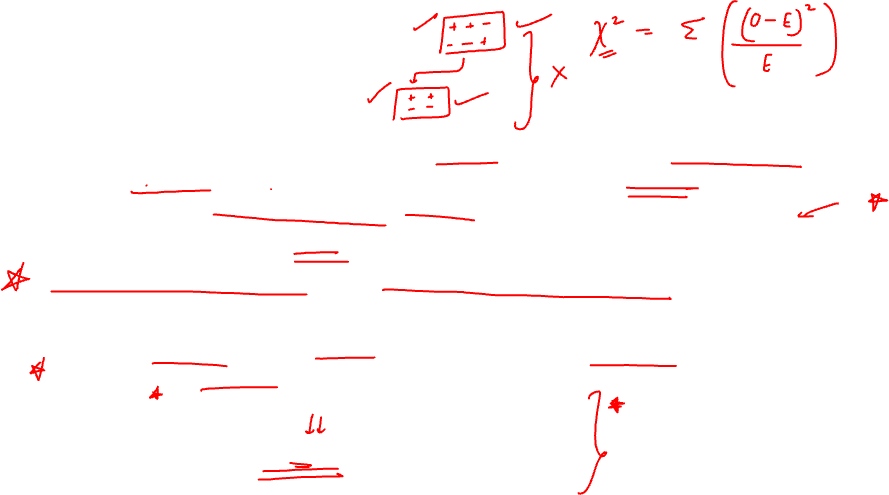 + + -
- - +
+ +
- -
x χ² = Σ ( (O-E)² / E )